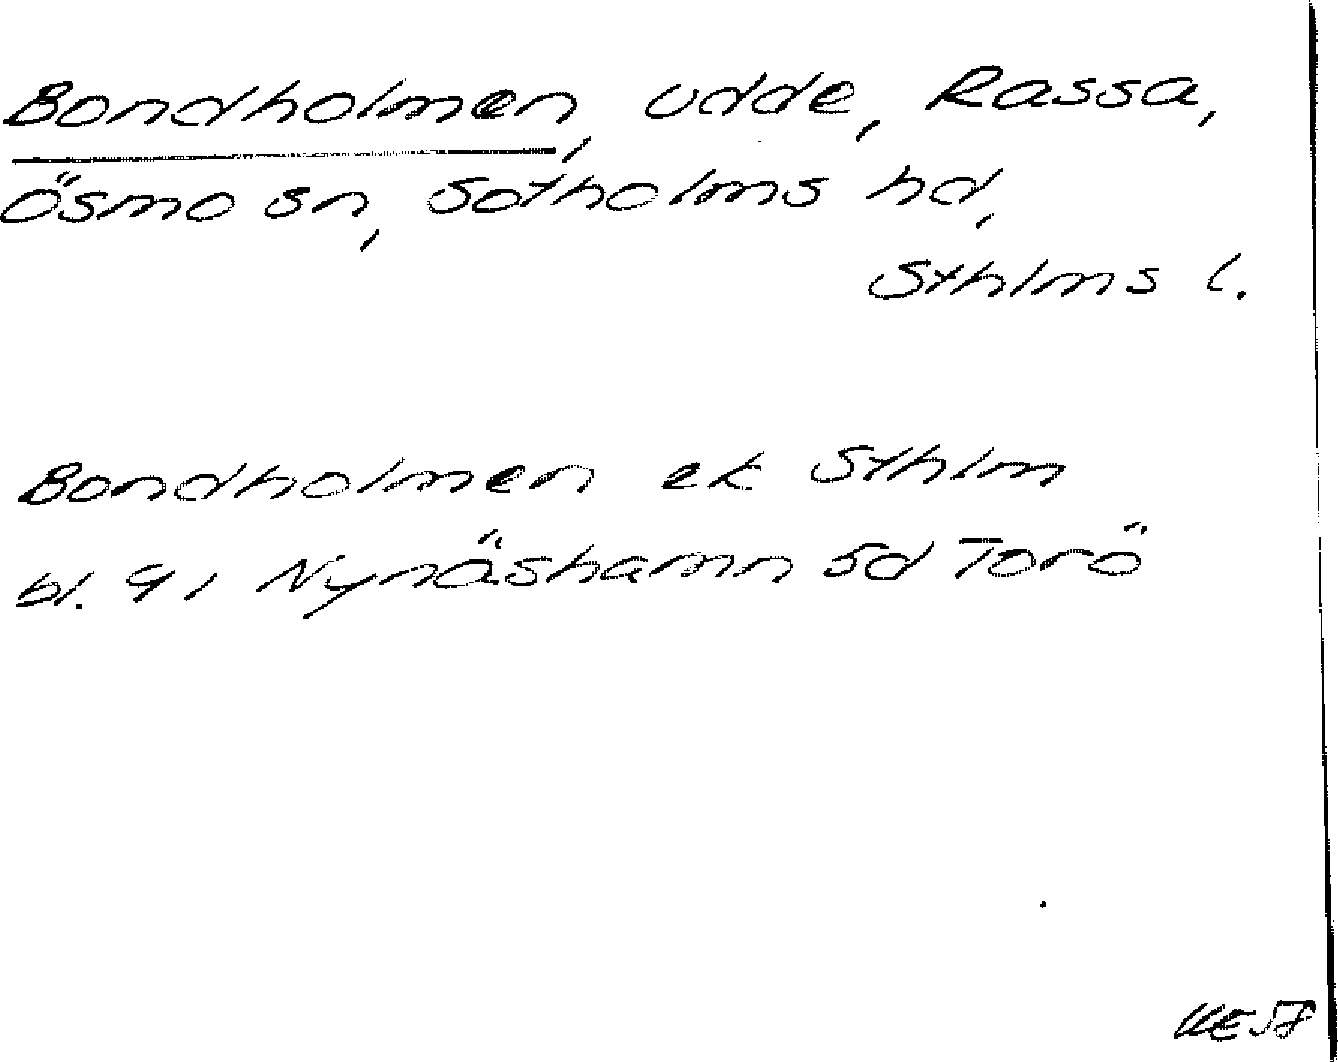 Bondholmen, udde, Rassa,
Ösmo sn, Sotholms hd,
Sthlms l.
Bondholmen ek Sthlm
bl. 91 Nynäshamn Sd Torö